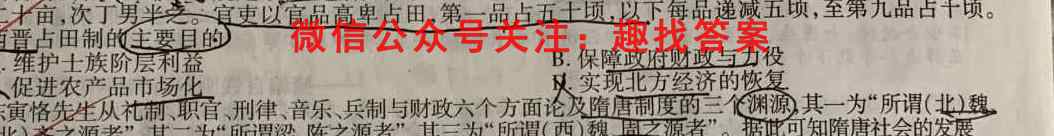 十亩,次丁男半之。官吏以官品高卑占田,第一品占五十顷,以下每品递减五顷,至第九品占十顷。
晋占田制的主要目的
微信公众号关注:趣找答案
. 维护士族阶层利益
B. 保障政府财政与力役
. 促进农产品市场化
D. 实现北方经济的恢复
寅恪先生从礼制、职官、刑律、音乐、兵制与财政六个方面论及隋唐制度的三个渊源,其一为“所谓(北)魏、
之源者”,其二为“所谓梁、陈之源者”,其三为“所谓(西)魏、周之源者”。据此可知隋唐社会的发展